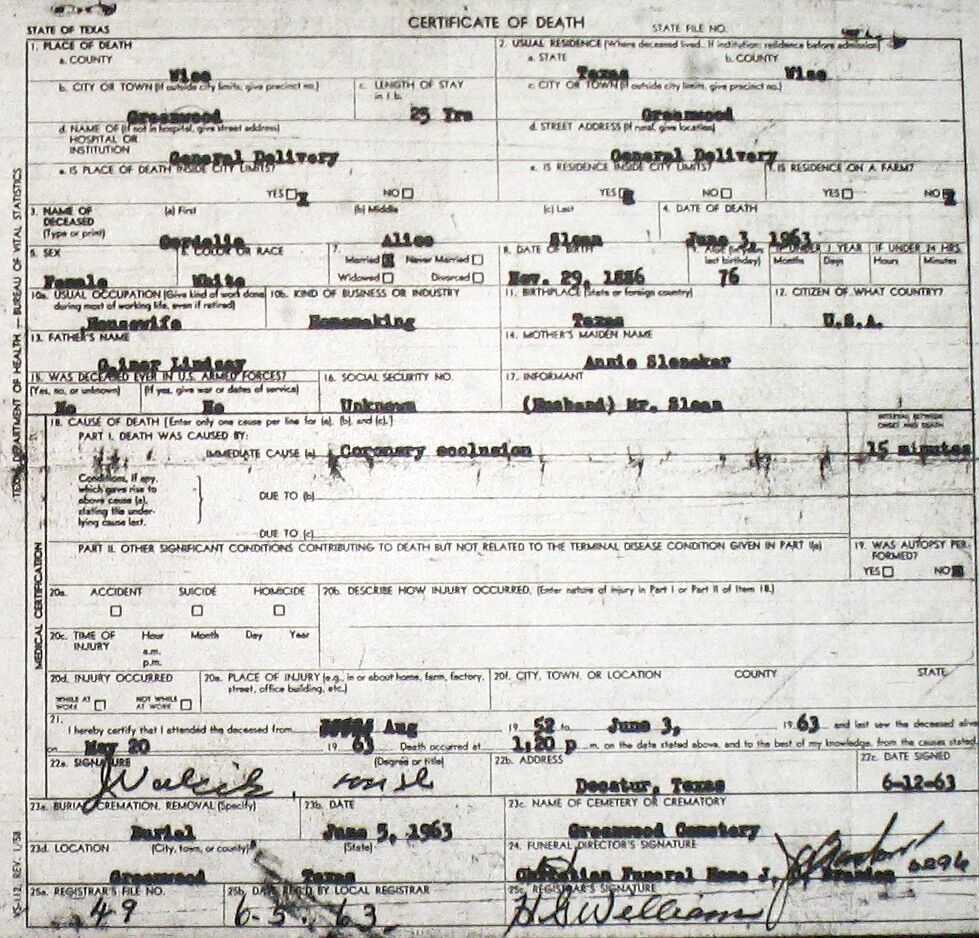 CERTIFICATE OF DEATH
STATE OF TEXAS
STATE FILE NO.
1. PLACE OF DEATH
a. COUNTY
Wise
2. USUAL RESIDENCE (Where deceased lived. If institution: residence before admission)
a. STATE
Texas
b. COUNTY
Wise
b. CITY OR TOWN (If outside city limits, give precinct no.)
Greenwood
c. LENGTH OF STAY in 1 b.
25 Yrs
c. CITY OR TOWN (If outside city limits, give precinct no.)
Greenwood
d. NAME OF (If not in hospital, give street address)
HOSPITAL OR
INSTITUTION
General Delivery
d. STREET ADDRESS (If rural, give location)
General Delivery
e. IS PLACE OF DEATH INSIDE CITY LIMITS?
YES X NO
e. IS RESIDENCE INSIDE CITY LIMITS?
YES X NO
f. IS RESIDENCE ON A FARM?
YES NO X
3. NAME OF
DECEASED
(Type or print)
(a) First
Cordelia
(b) Middle
Alice
(c) Last
Sloan
4. DATE OF DEATH
June 3, 1963
5. SEX
Female
6. COLOR OR RACE
White
7.
Married Never Married
Widowed Divorced
8. DATE OF BIRTH
Nov. 29, 1886
9. AGE (In years last birthday)
76
IF UNDER 1 YEAR
Months Days
IF UNDER 24 HRS.
Hours Minutes
10a. USUAL OCCUPATION (Give kind of work done
during most of working life, even if retired)
Housewife
10b. KIND OF BUSINESS OR INDUSTRY
Homemaking
11. BIRTHPLACE (State or foreign country)
Texas
12. CITIZEN OF WHAT COUNTRY?
U.S.A.
13. FATHER'S NAME
Lindsay
14. MOTHER'S MAIDEN NAME
Annie Sleneker
15. WAS DECEASED EVER IN U.S. ARMED FORCES?
(Yes, no, or unknown) (If yes, give war or dates of service)
No No
16. SOCIAL SECURITY NO.
Unknown
17. INFORMANT
(Husband) Mr. Sloan
18. CAUSE OF DEATH [Enter only one cause per line for (a), (b), and (c).]
PART I. DEATH WAS CAUSED BY:
IMMEDIATE CAUSE (a) Coronary occlusion
INTERVAL BETWEEN
ONSET AND DEATH
15 minutes
Conditions, if any,
which gave rise to
above cause (a),
stating the under-
lying cause last.
DUE TO (b)
DUE TO (c)
PART II. OTHER SIGNIFICANT CONDITIONS CONTRIBUTING TO DEATH BUT NOT RELATED TO THE TERMINAL DISEASE CONDITION GIVEN IN PART I(a)
19. WAS AUTOPSY PER-
FORMED?
YES NO
20a. ACCIDENT SUICIDE HOMICIDE
20b. DESCRIBE HOW INJURY OCCURRED. (Enter nature of injury in Part I or Part II of Item 18.)
20c. TIME OF
INJURY
Hour Month Day Year
a.m.
p.m.
20d. INJURY OCCURRED
WHILE AT
WORK
NOT WHILE
AT WORK
20e. PLACE OF INJURY (e.g., in or about home, farm, factory,
street, office building, etc.)
20f. CITY, TOWN, OR LOCATION COUNTY STATE
21.
I hereby certify that I attended the deceased from Aug 19 52 to June 3, 19 63 and last saw the deceased alive
on May 20 19 63 Death occurred at 1:20 p m. on the date stated above, and to the best of my knowledge, from the causes stated.
22a. SIGNATURE (Degree or title)
22b. ADDRESS
Decatur, Texas
22c. DATE SIGNED
6-12-63
23a. BURIAL, CREMATION, REMOVAL (Specify)
Burial
23b. DATE
June 5, 1963
23c. NAME OF CEMETERY OR CREMATORY
Greenwood Cemetery
23d. LOCATION (City, town, or county) (State)
Greenwood Texas
24. FUNERAL DIRECTOR'S SIGNATURE
Christian Funeral Home J.
6296
25a. REGISTRAR'S FILE NO.
49
25b. DATE REC'D BY LOCAL REGISTRAR
6-5-63
25c. REGISTRAR'S SIGNATURE
H G Williams
TEXAS DEPARTMENT OF HEALTH — BUREAU OF VITAL STATISTICS
MEDICAL CERTIFICATION
VS-112 REV. 1/58